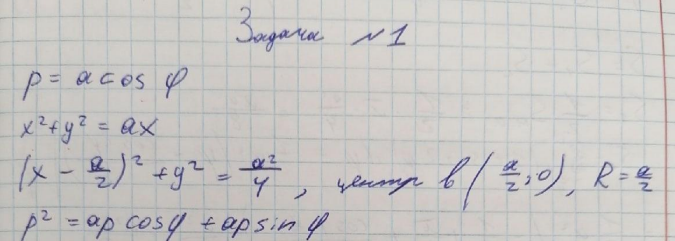 Задача №1
ρ = a cos φ
x² + y² = ax
(x - a/2)² + y² = a²/4, центр в (a/2; 0), R = a/2
ρ² = aρ cos φ + aρ sin φ